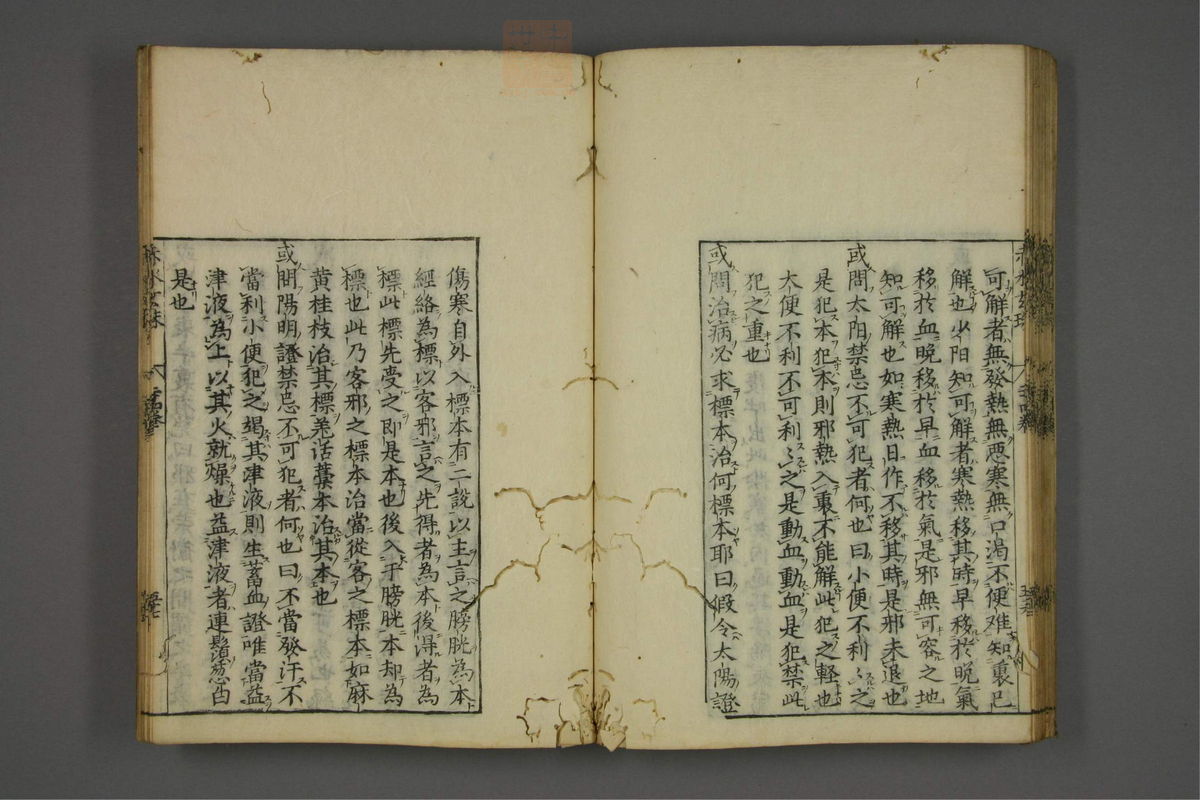 可解者無發熱無悪寒無口渴不便难知裏已
解也少阳知可解者寒熱移其時早移於晩氣
移於血晩移於早血移於氣是邪無可容之地
知可解也如寒熱日作不移其時是邪未退也
或問太阳禁忌不可犯者何也曰小便不利〻之
是犯本犯本則邪熱入裏不能解此犯之軽也
大便不利不可利〻之是動血動血是犯禁此
犯之重也
或問治病必求標本治何標本耶曰假令太陽證
傷寒自外入標本有二說以主言之膀胱為本
經絡為標以客邪言之先得者為本後得者為
標此標先受之即是本也後入于膀胱本却為
標也此乃客邪之標本治當從客之標本如麻
黄桂枝治其標羗活藁本治其本也
或問陽明證禁忌不可犯者何也曰不當發汗不
當利小便犯之竭其津液則生蓄血證唯當益
津液為上以其火就燥也益津液者連鬚葱白
是也